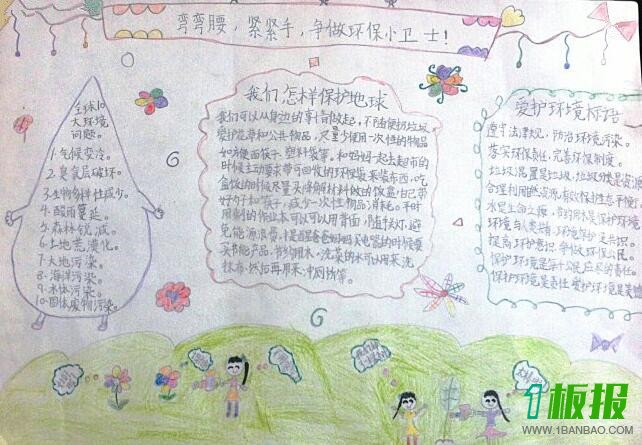 弯弯腰，紧紧手，争做环保小卫士！
全球10
大环境
问题。
1.气候变冷。
2.臭氧层破坏。
3.生物多样性减少。
4.酸雨蔓延。
5.森林锐减。
6.土地荒漠化。
7.大地污染。
8.海洋污染。
9.水体污染。
10.固体废物污染。
我们怎样保护地球
我们可以从身边的事情做起，不随便扔垃圾
爱护花草和公共物品，尽量少使用一次性的物品
如方便面筷子、塑料袋等，和妈妈一起去超市的
时候主动要求带可回收的环保袋来装东西，吃
盒饭的时候尽量买降解材料做的饭盒，自己带
好勺子和筷子，减少一次性物品消耗。平时
用剩的作业本可以可以用背面，随手关灯，避
免能源浪费，
买节能产品，节约用水，洗菜的水可以用来洗
抹布，然后再用来冲厕所等。
爱护环境标语
遵守法律规，防治环境污染。
落实环保责任，完善环保制度。
垃圾混置是垃圾，垃圾分类是资源
合理利用自然源，有效保护生态平衡
水是生命之源，
环境与人类共存，
提高环护意识，争做环保公民。
保护环境是每个公民应尽的责任。
保护环境是责任 爱护环境是美德
1板报
WWW.1BANBAO.COM